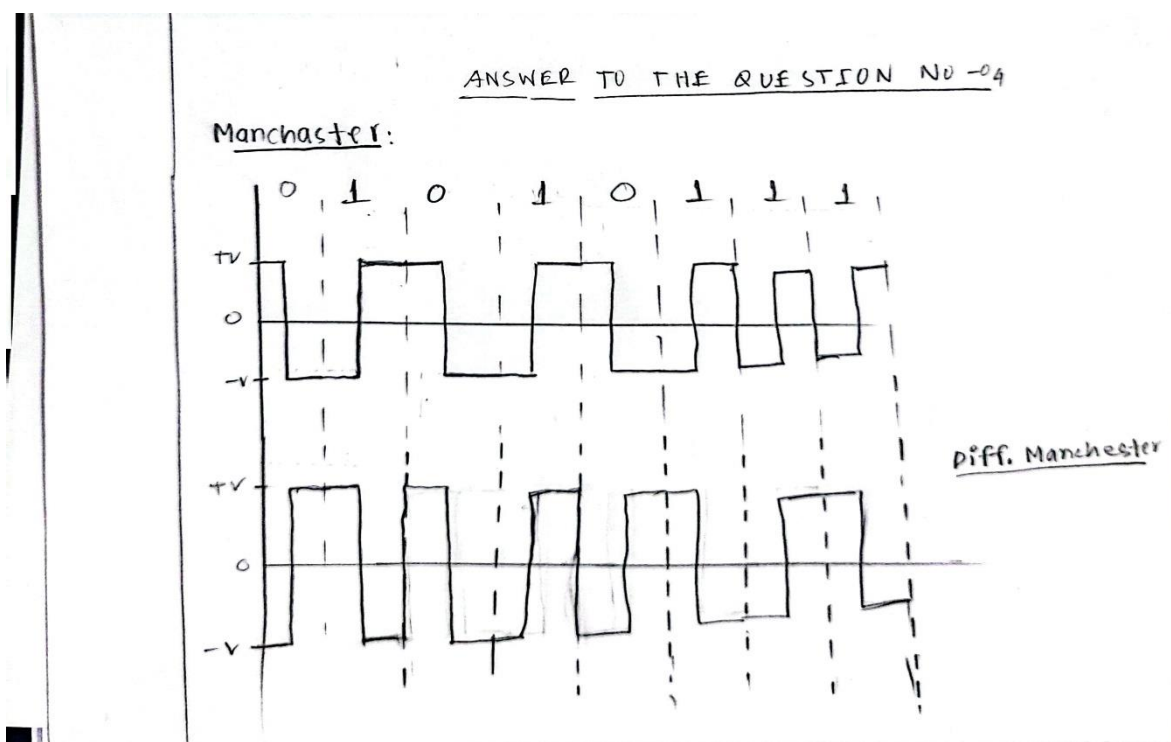 ANSWER TO THE QUESTION NO -04
Manchaster:
0 1 0 1 0 1 1 1
+V
0
-V
Diff. Manchester
+V
0
-V